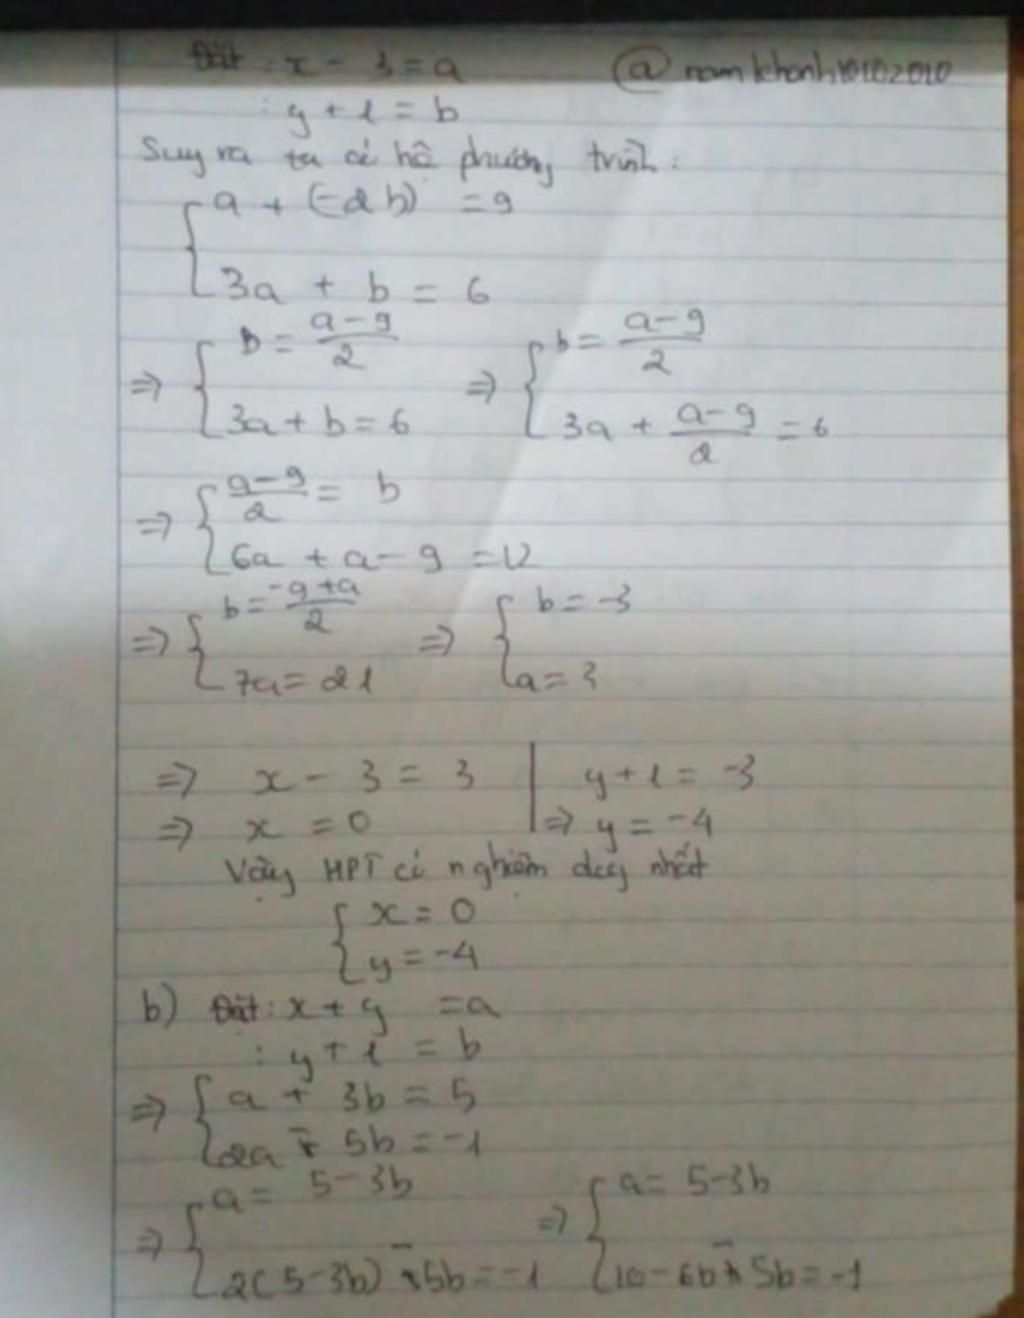 Đặt: x - 3 = a @namkhanh10102010
: y + 1 = b
Suy ra ta có hệ phương trình:
{ a + (-2b) = 9
3a + b = 6
=> { b = (a-9)/2 => { b = (a-9)/2
3a + b = 6 3a + (a-9)/2 = 6
=> { (a-9)/2 = b
6a + a - 9 = 12
=> { b = (-9+a)/2 => { b = -3
7a = 21 a = 3
=> x - 3 = 3 | y + 1 = -3
=> x = 0 | => y = -4
Vậy HPT có nghiệm duy nhất
{ x = 0
y = -4
b) Đặt: x + y = a
: y + 1 = b
=> { a + 3b = 5
2a - 5b = -1
=> { a = 5-3b => { a = 5-3b
2(5-3b) - 5b = -1 10 - 6b - 5b = -1